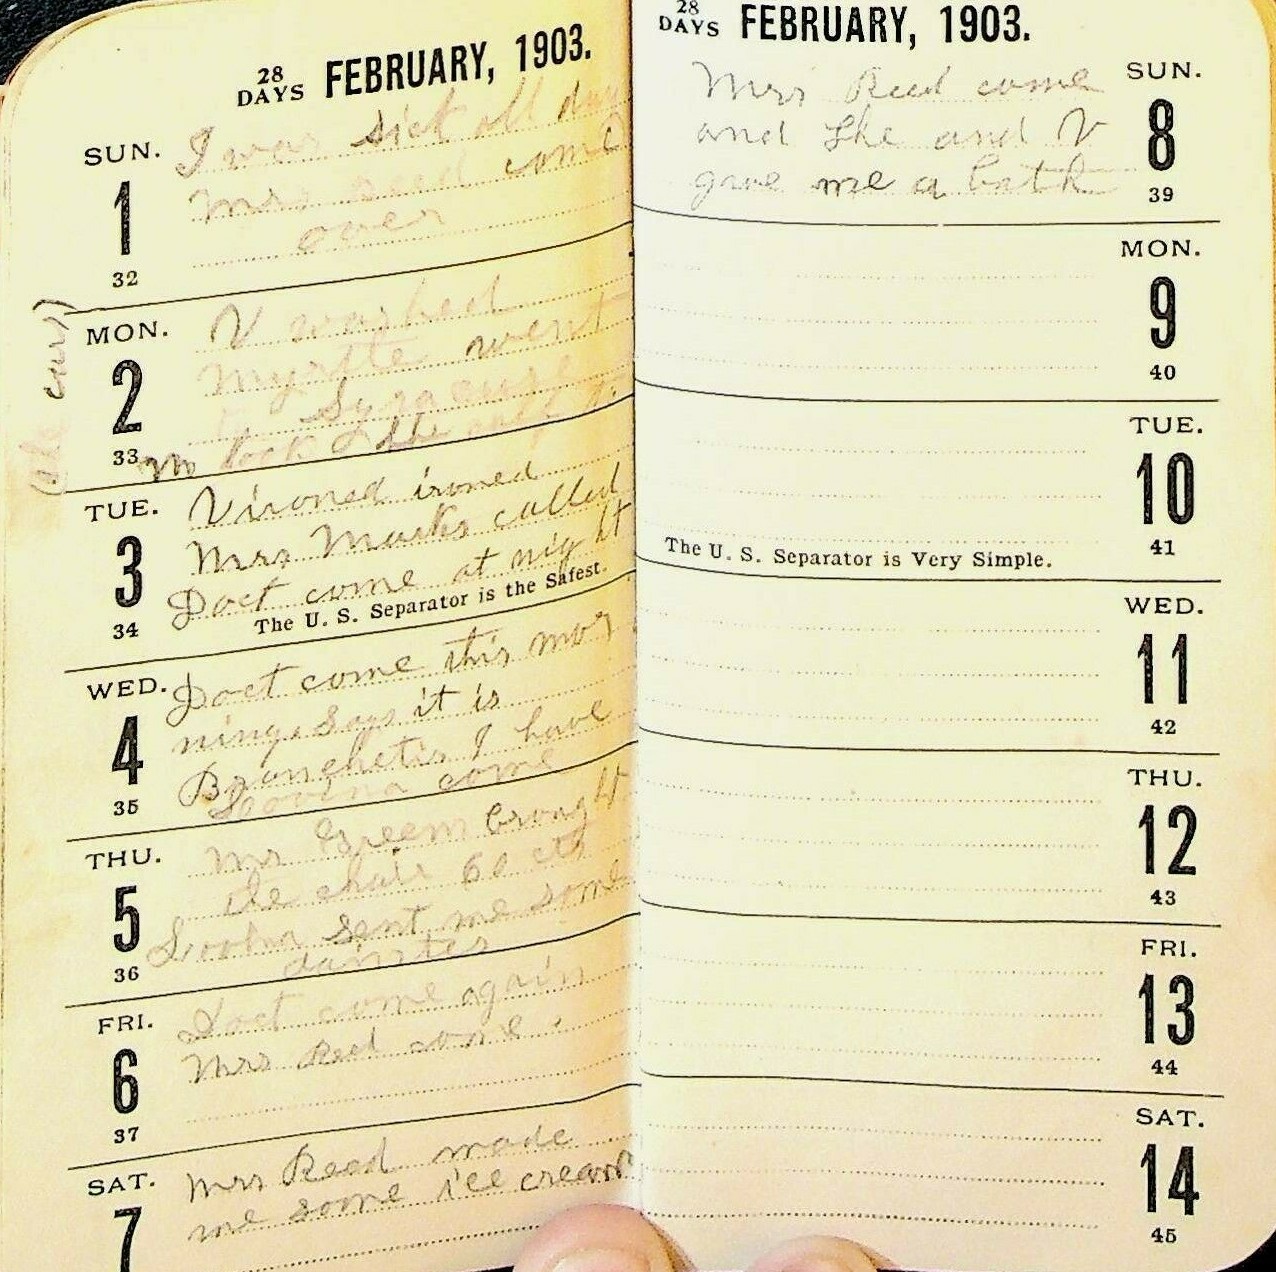 28
DAYS FEBRUARY, 1903.
SUN.
1
32
I was sick all day
Mrs Reed come
over
MON.
2
33
V washed
Myrtle went
to Syracuse
M took the
cars)
TUE.
3
34
V ironed ironed
Mrs Marks called
Doct come at night
The U. S. Separator is the Safest.
WED.
4
35
Doct come this mor
ning. Says it is
Bronchetis I have
Lovina come
THU.
5
36
Mr Green brought
the chair 60 cts
sent me some
dainties
FRI.
6
37
Doct come again
Mrs Reed come.
SAT.
7
Mrs Reed made
me some ice cream
28
DAYS FEBRUARY, 1903.
SUN.
8
39
Mrs Reed come
and she and V
gave me a bath
MON.
9
40
TUE.
10
41
The U. S. Separator is Very Simple.
WED.
11
42
THU.
12
43
FRI.
13
44
SAT.
14
45